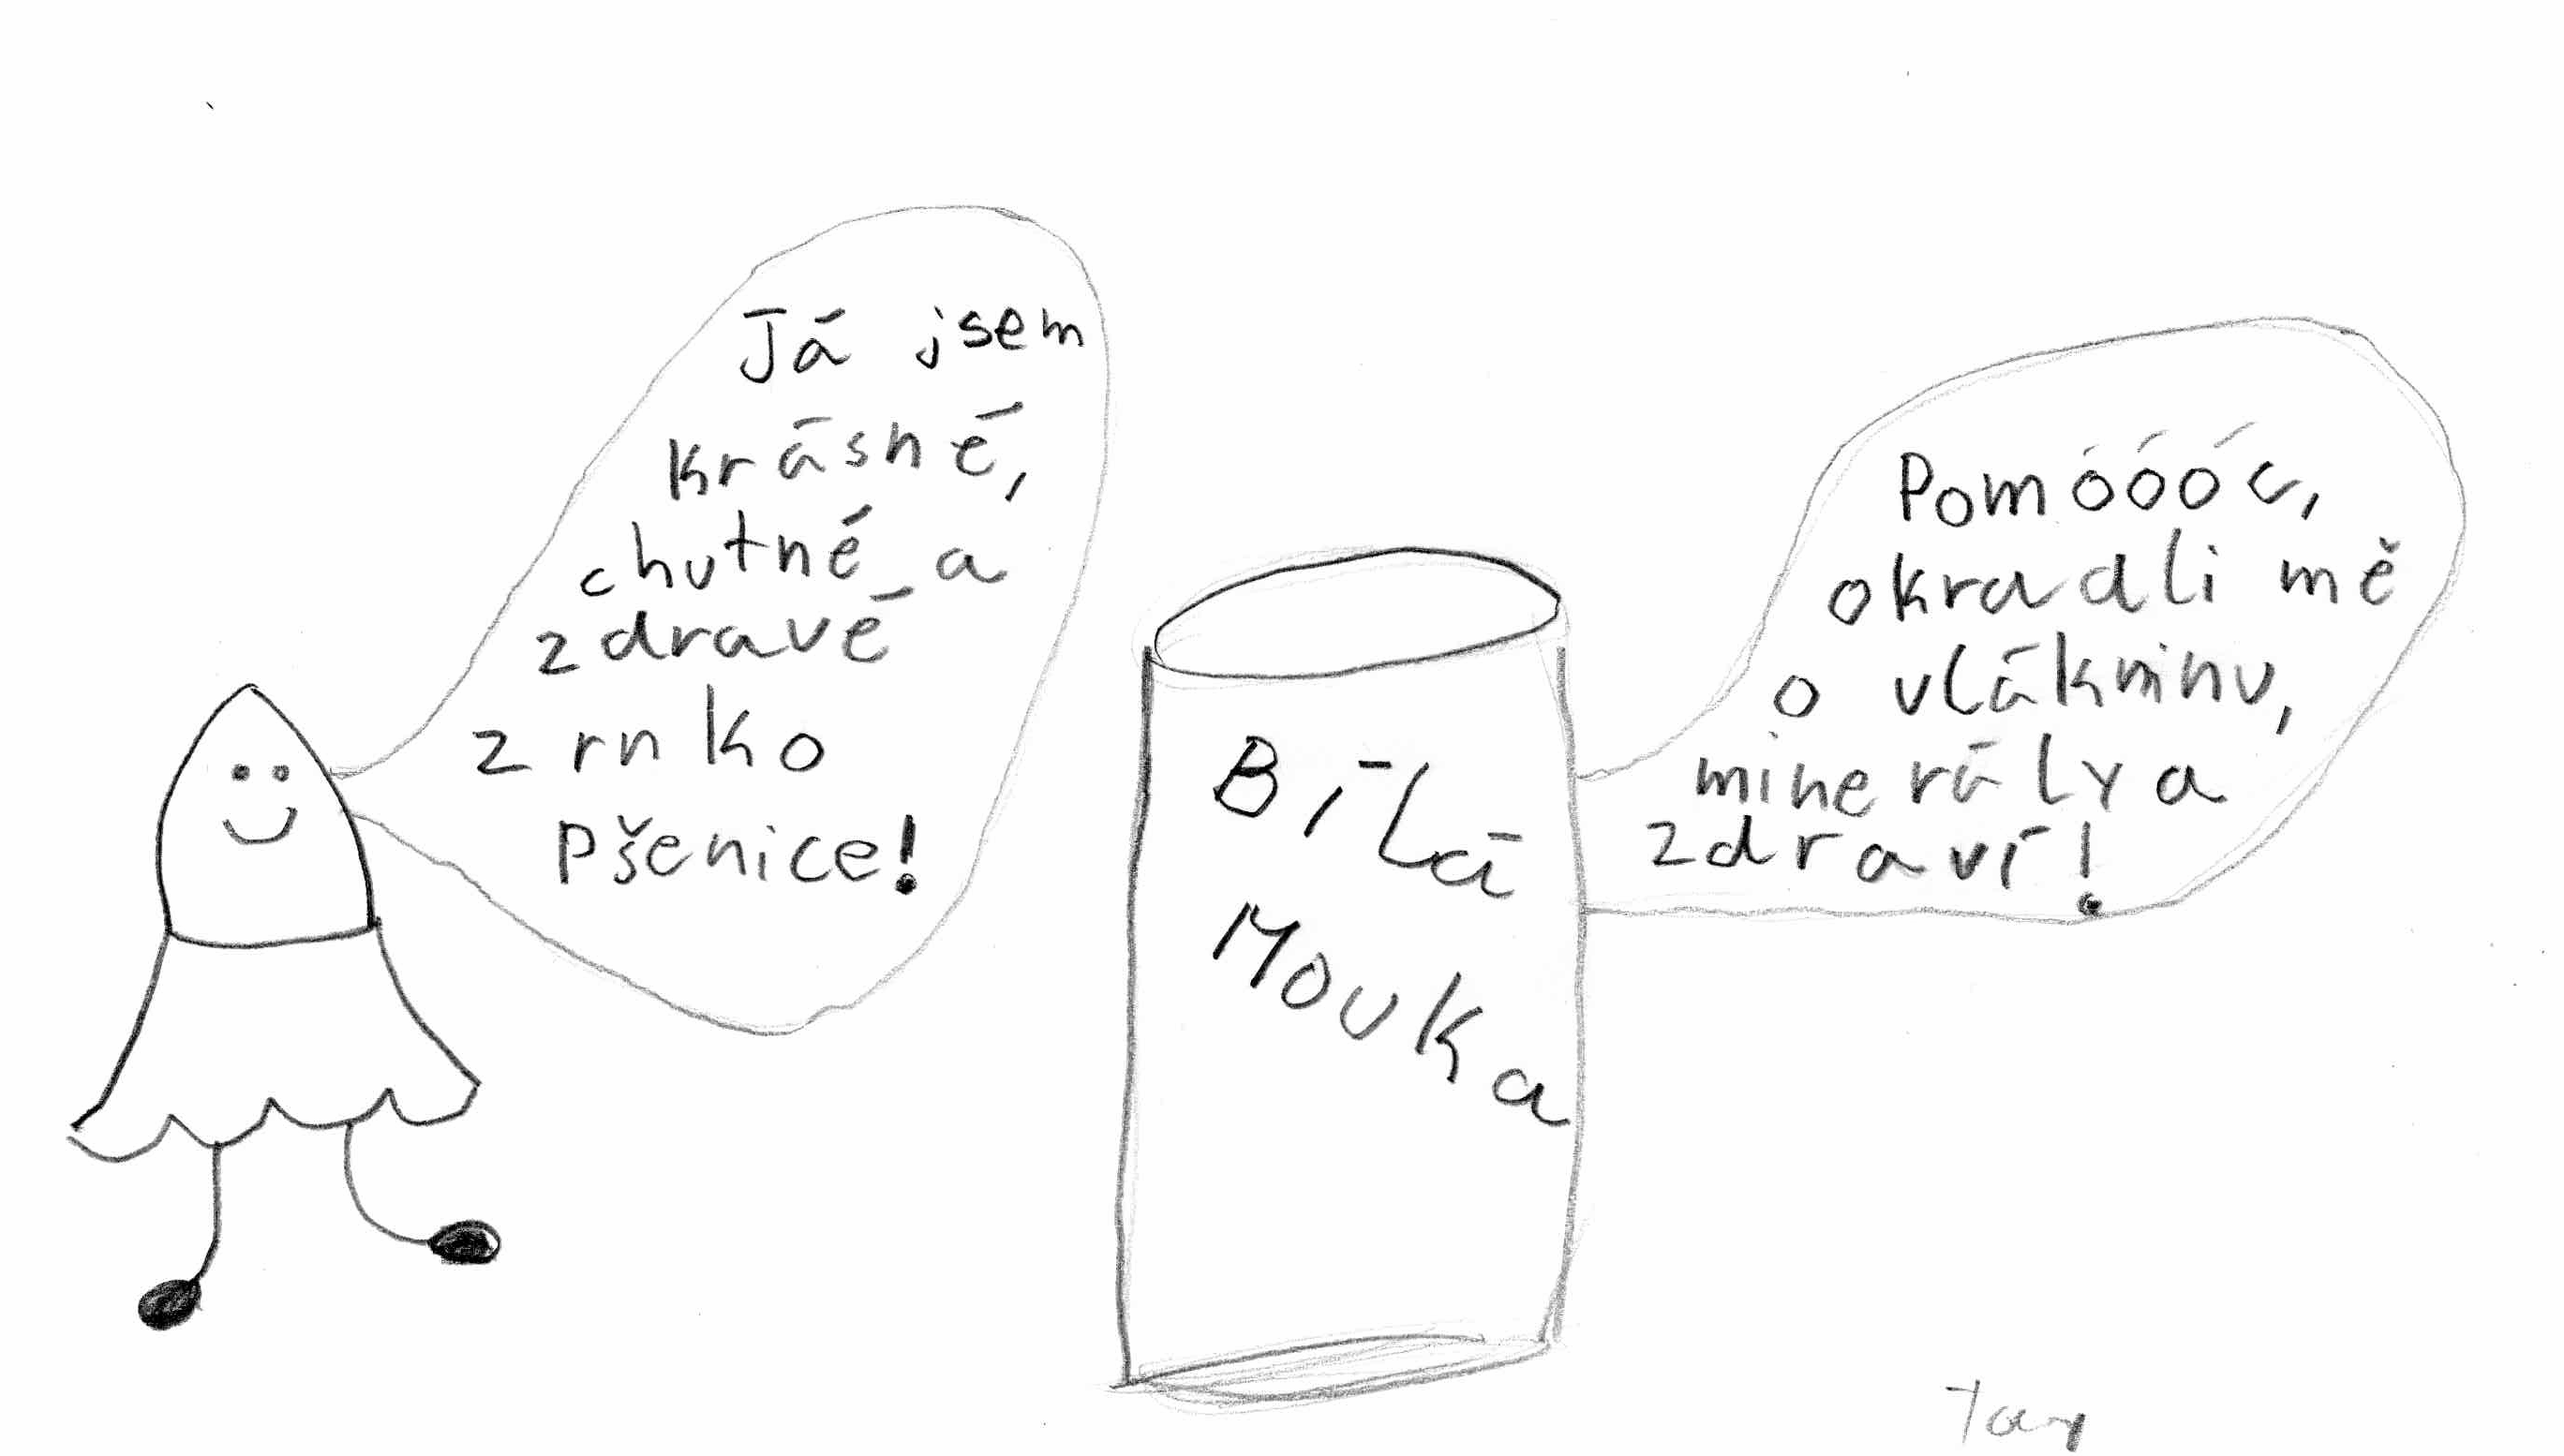 Já jsem
krásné,
chutné a
zdravé
zrnko
pšenice!
Bílá
Mouka
Pomóóóc,
okradli mě
o vlákninu,
minerály a
zdraví!